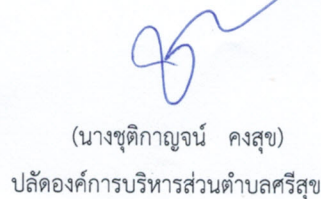 (นางชุติกาญจน์ คงสุข)
ปลัดองค์การบริหารส่วนตำบลศรีสุข